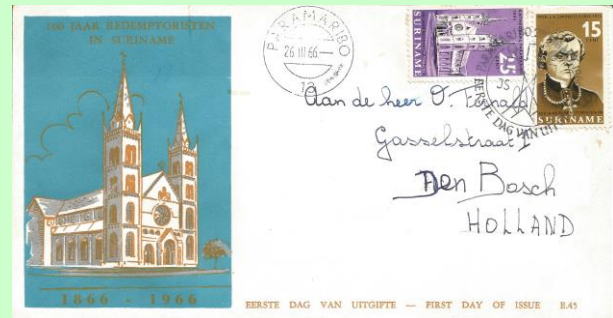 100 JAAR REDEMPTORISTEN
IN SURINAME
PARAMARIBO
26 III 66.—
12
SURINAME
25
15
CENT
SURINAME
EERSTE DAG VAN UIT
Aan de heer O.
Gasselstraat 1
Den Bosch
HOLLAND
1866 - 1966
EERSTE DAG VAN UITGIFTE — FIRST DAY OF ISSUE E.45